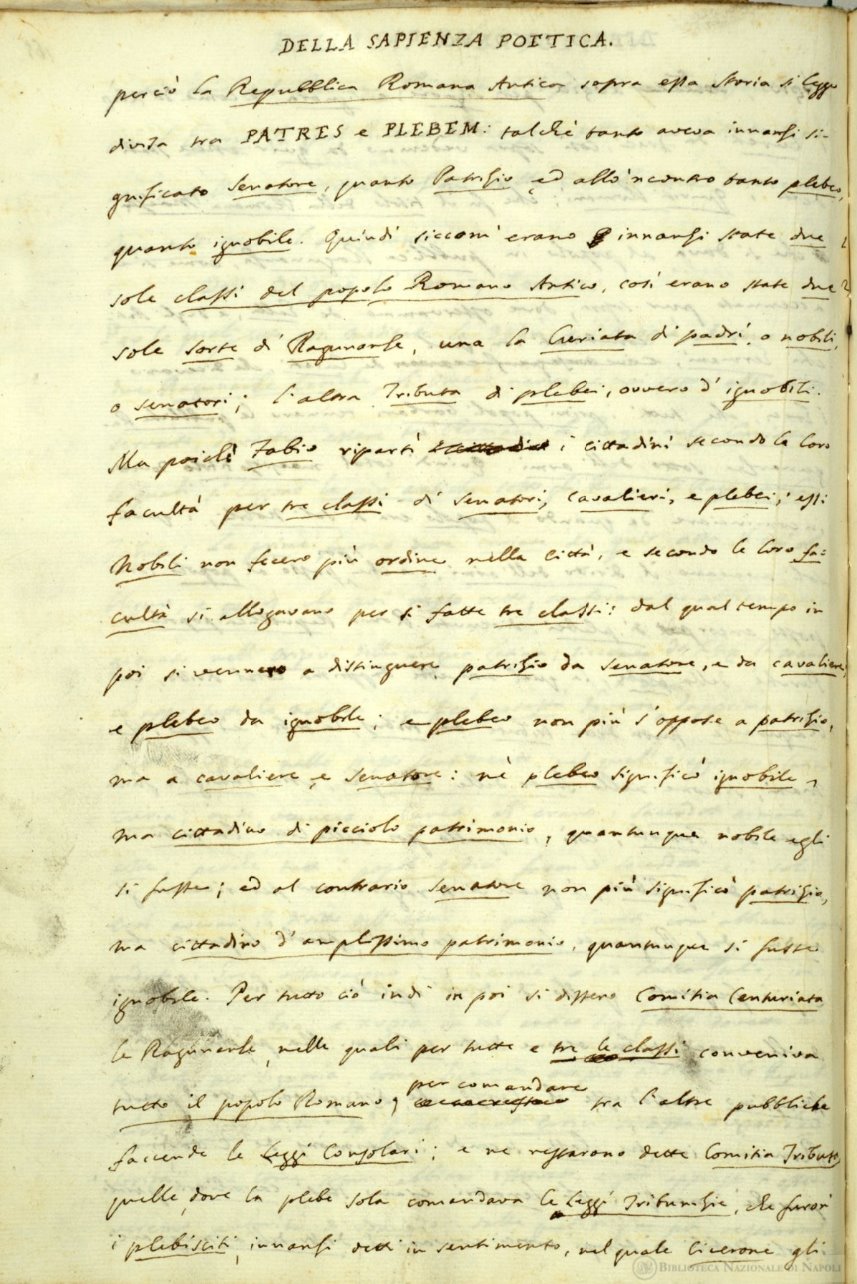 DELLA SAPIENZA POETICA.
perciò la Repubblica Romana Antica sopra essa Storia si legge
divisa tra PATRES e PLEBEM: talchè tanto aveva innanzi si-
gnificato Senatore, quanto Patrizio, ed allo 'ncontro tanto plebeo,
quanto ignobile. Quindi siccom' erano innanzi state due
sole classi del popolo Romano Antico, così erano state due
sole sorte di Ragunanze, una la Curiata di padri, o nobili,
o senatori; l'altra Tributa di plebei, ovvero d' ignobili.
Ma poichè Fabio ripartì i cittadini secondo le loro
facultà per tre classi di senatori, cavalieri, e plebei; essi
Nobili non fecero più ordine nella città, e secondo le loro fa=
cultà si allogavano per sì fatte tre classi: dal qual tempo in
poi si vennero a distinguere patrizio da senatore, e da cavaliere,
e plebeo da ignobile; e plebeo non più s'oppose a patrizio,
ma a cavaliere, e senatore: nè plebeo significò ignobile,
ma cittadino di picciolo patrimonio, quantunque nobile egli
si fusse; ed al contrario senatore non più significò patrizio,
ma cittadino d'amplissimo patrimonio, quantunque si fusse
ignobile. Per tutto ciò indi in poi si dissero Comitia Centuriata
le Ragunanze, nelle quali per tutte e tre le classi conveniva
tutto il popolo Romano, per comandare tra l'altre pubbliche
faccende le leggi Consolari; e ne restarono dette Comitia Tributa
quelle, dove la plebe sola comandava le leggi Tribunizie, che furon
i plebisciti, innanzi detti in sentimento, nel quale Cicerone gli
BIBLIOTECA NAZIONALE DI NAPOLI